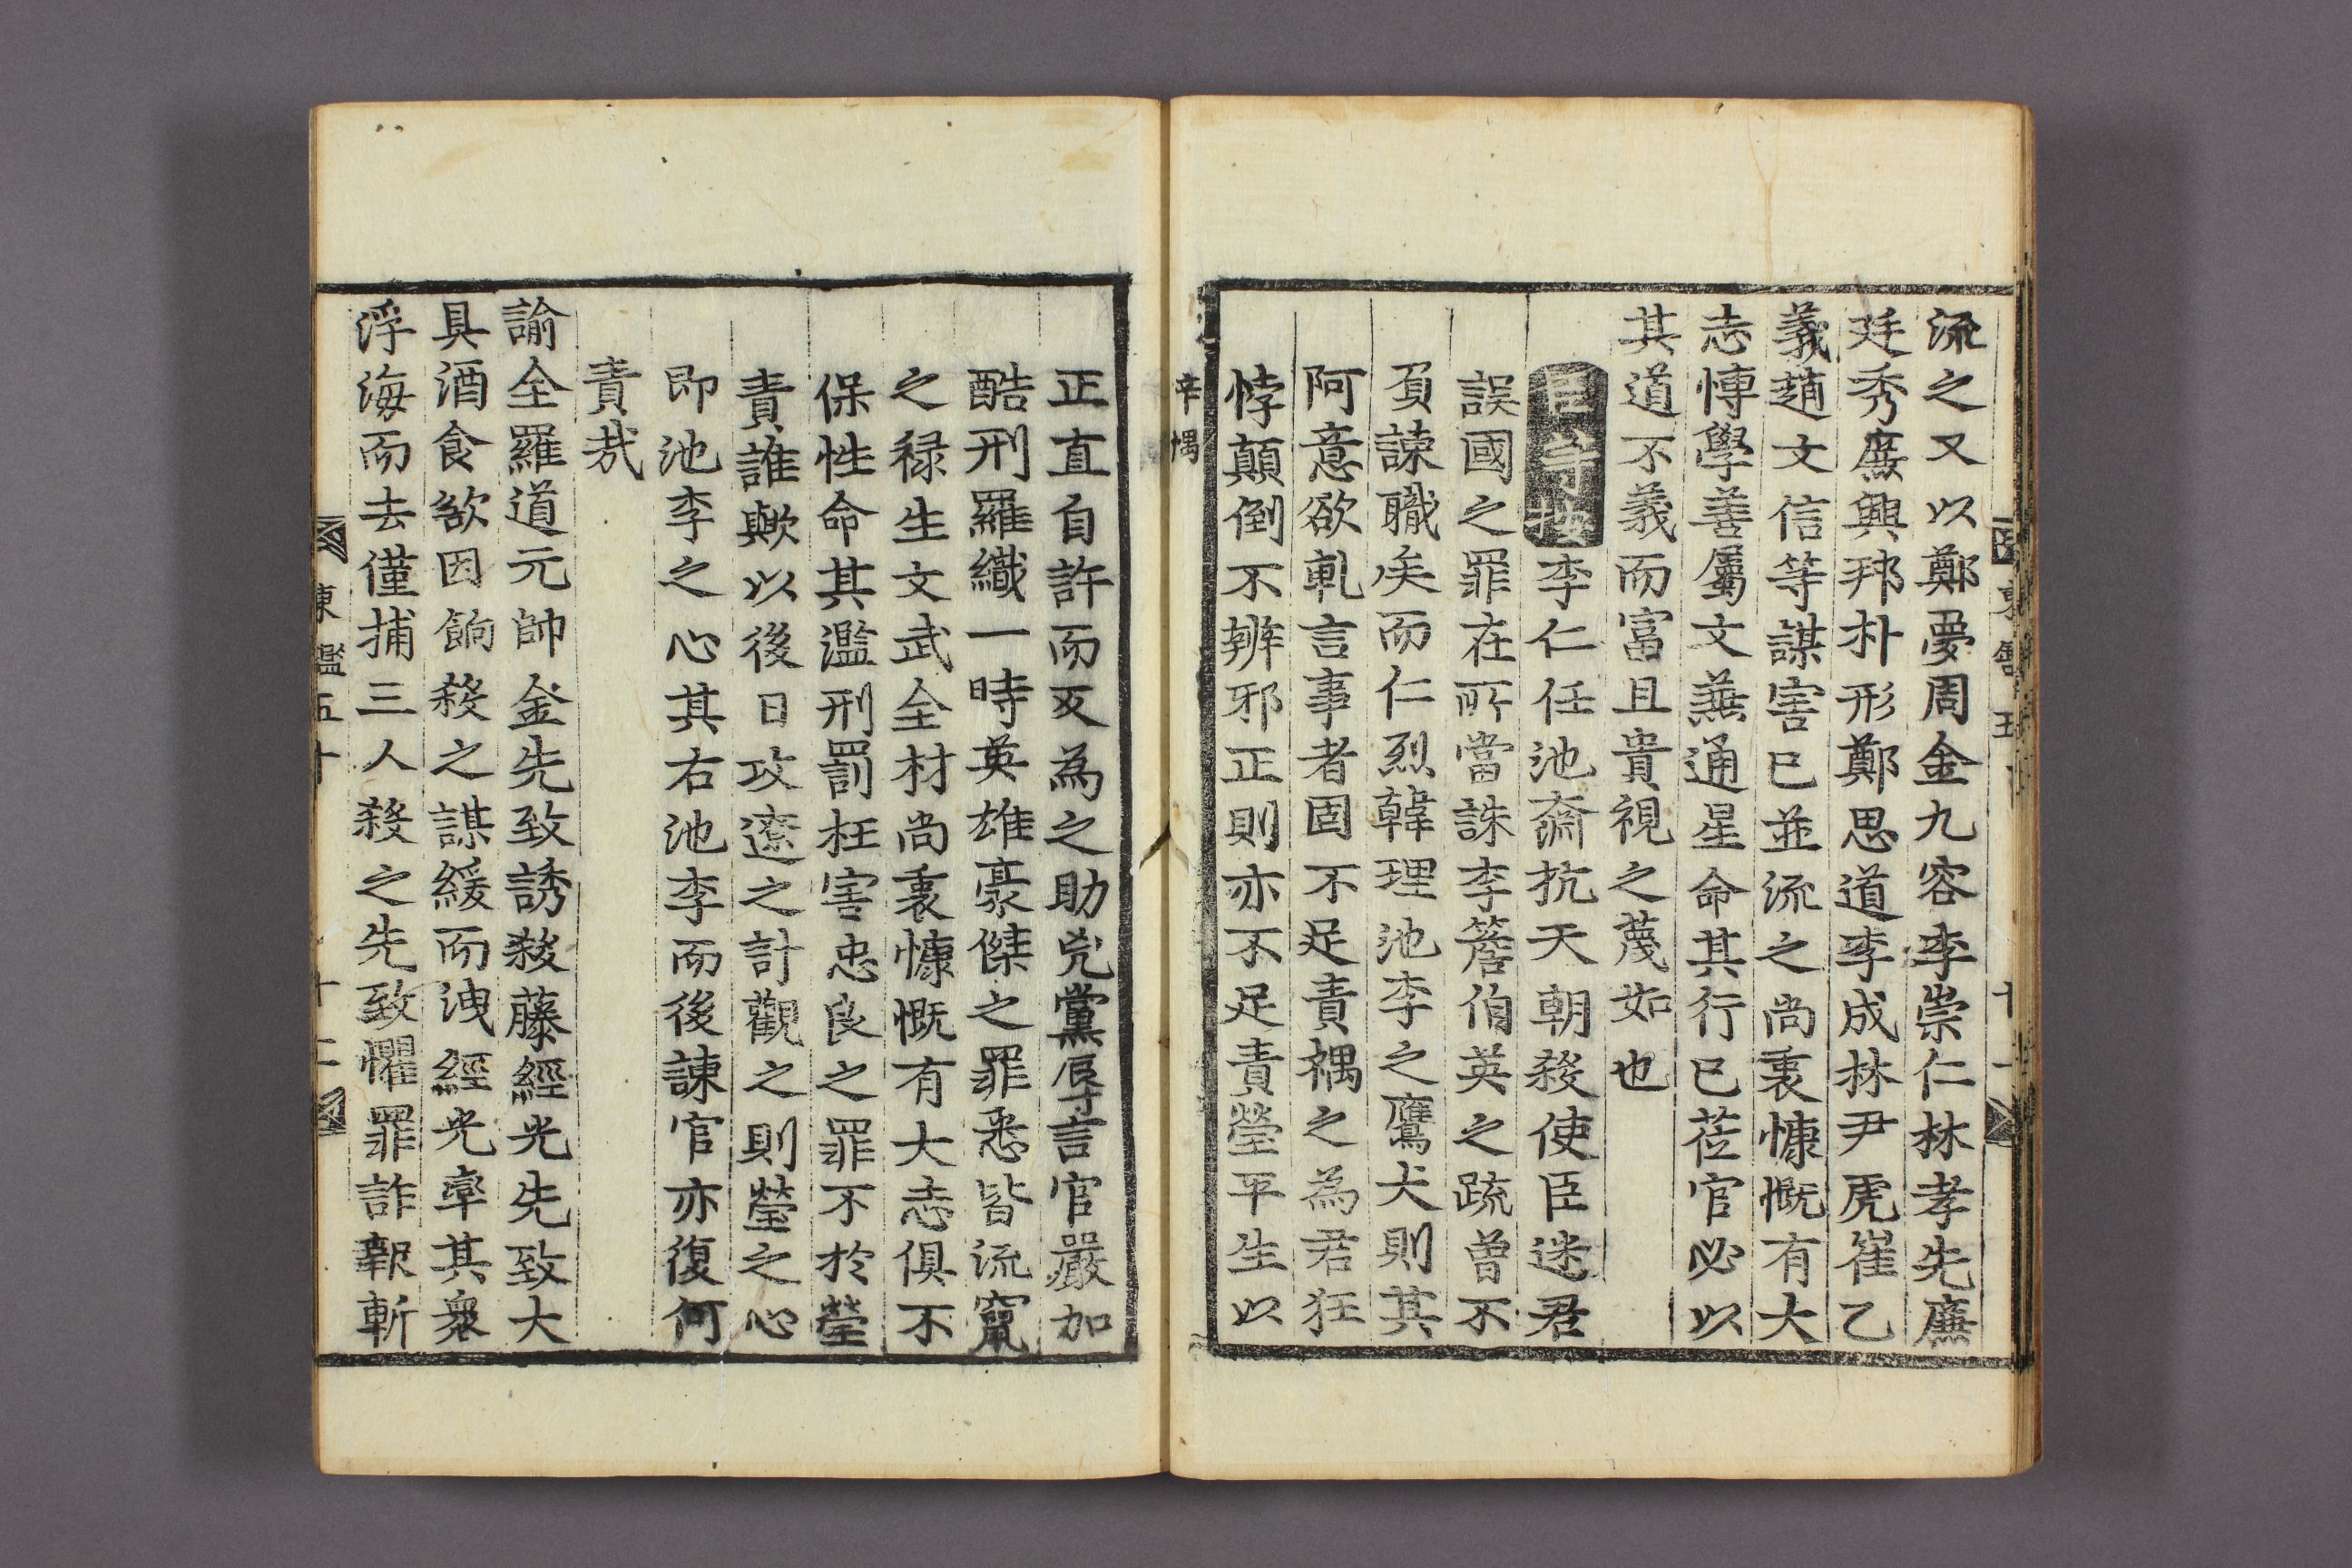 流之又以鄭夢周金九容李崇仁林孝先廉
廷秀廉興邦朴形鄭思道李成林尹虎崔乙
義趙文信等謀害已並流之尚衷慷慨有大
志博學善屬文兼通星命其行已莅官必以
其道不義而富且貴視之蔑如也
李仁任池奫抗天朝殺使臣迷君
誤國之罪在所當誅李簷伯英之疏曾不
負諫職矣而仁烈韓理池李之鷹犬則其
阿意欲軋言事者固不足責禑之為君狂
悖顛倒不辨邪正則亦不足責瑩平生以
辛禑
正直自許而反為之助兇黨辱言官嚴加
酷刑羅織一時英雄豪傑之罪悉皆流竄
之祿生文武全材尚衷慷慨有大志俱不
保性命其濫刑罰枉害忠良之罪不於瑩
責誰歟以後日攻遼之計觀之則瑩之心
即池李之心其右池李而後諫官亦復何
責哉
諭全羅道元帥金先致誘殺藤經光先致大
具酒食欲因餉殺之謀緩而洩經光率其衆
浮海而去僅捕三人殺之先致懼罪詐報斬
東鑑五十
十二